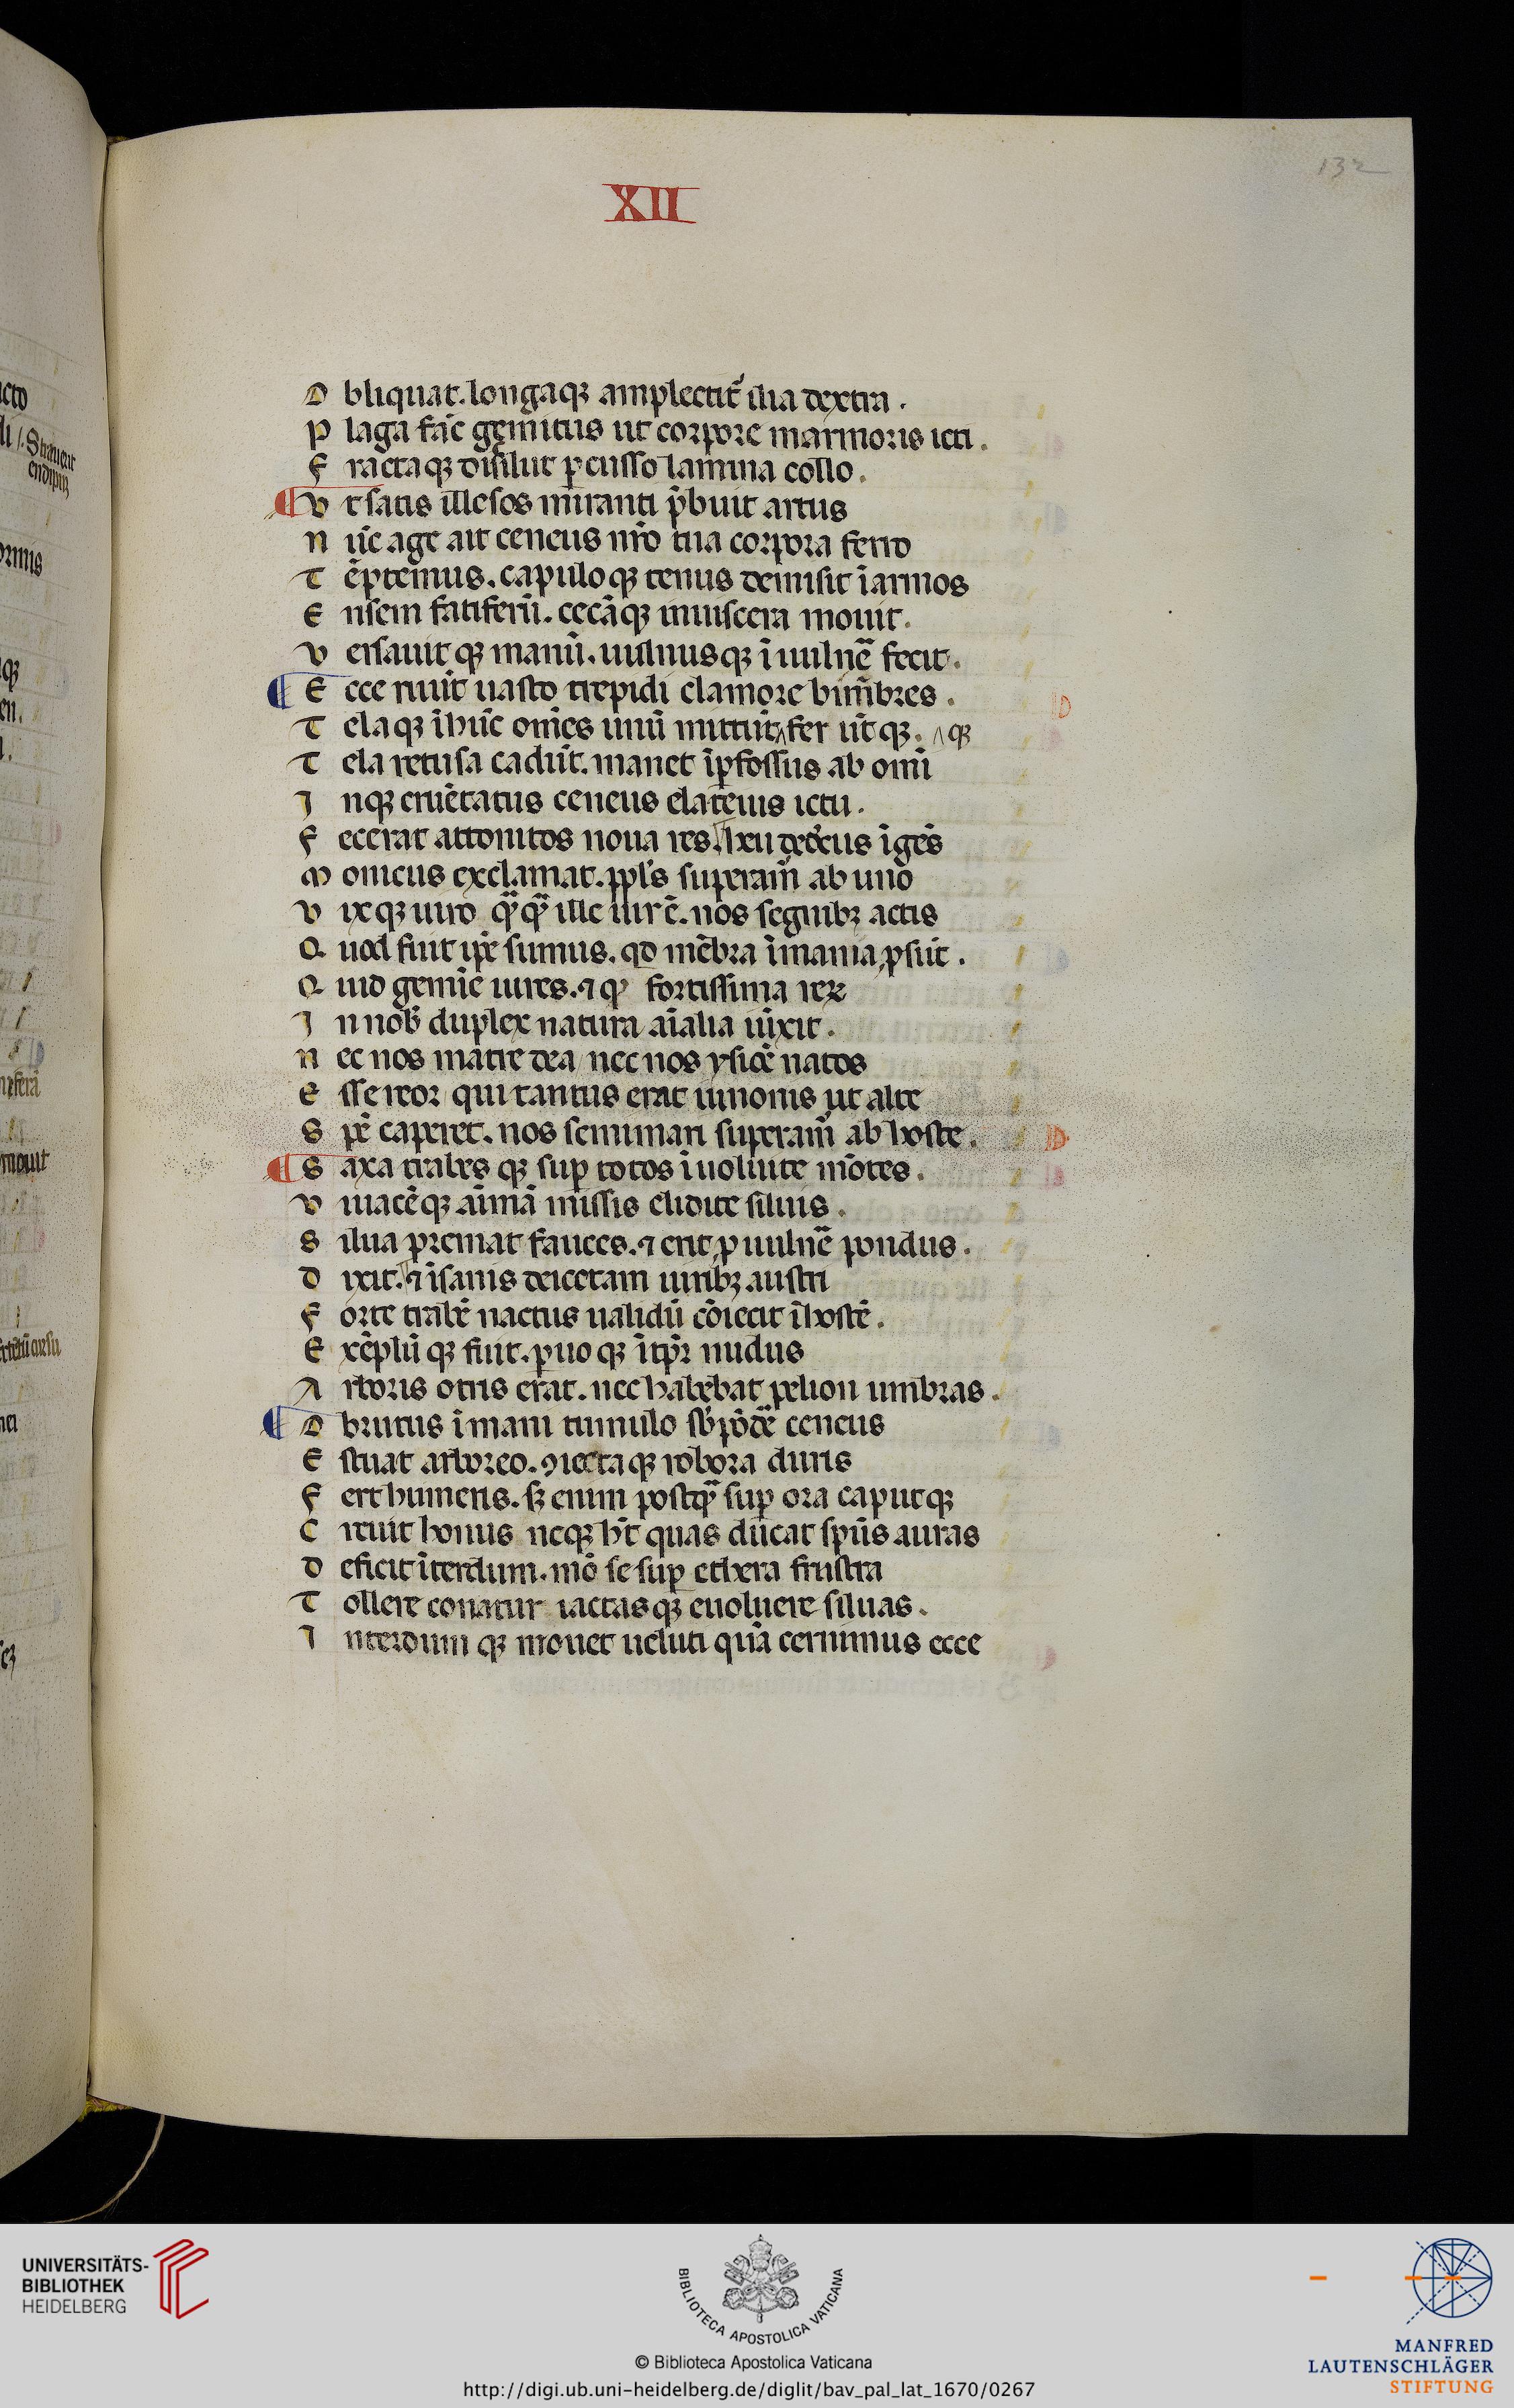 132
XII
O bliquat. longaqꝫ amplectit᷑ ilia dextra .
P laga fac̄ gemitus ut corpore marmoris icti .
F ractaqꝫ disiluit ꝑcusso lamina collo .
V t satis illesos miranti p̄buit artus
N ūc age ait ceneus nr̄o tua corpora ferro
T ēptemus. capulo qꝫ tenus demisit ī armos
E nsem fatiferū. cecā qꝫ inuiscera mouit .
V ersauit qꝫ manū. uulnus qꝫ ī uulnē fecit .
E cce ruit uasto trepidi clamore bimēbres .
T ela qꝫ ī hūc om̄es unū mittūt fer ūt qꝫ . ^ qꝫ
T ela retusa cadūt. manet īꝑfossus ab om̄i
I nqꝫ cruētatus ceneus elateius ictu .
F ecerat attonitos noua res. heu dedecus īgēs
M onicus exclamat. ppl̄s superam̄ ab uno
V ix qꝫ uiro qͣ̄qͣ̄ ille uir ē. nos segnibꝫ actis
Q uod fuit ip̄e sumus. qd mēbra īmania ꝓsūt .
Q uid gemīe uires. ⁊ qͥ fortissima reꝝ
I n nob̄ duplex natura aīalia iūxit .
N ec nos matre dea nec nos ysiōē natos
E sse reor qui tantus erat iunonis ut alte
S pē caperet. nos semimari superam̄ ab hoste .
S axa trabes qꝫ suꝑ totos īuoluite mōtes .
V iuacē qꝫ aīmā missis elidite siluis .
S ilua premat fauces. ⁊ erit ꝓ uulnē pondus .
D ixit. ⁊ īsanis deiectam uiribꝫ austri
F orte trabē nactus ualidū cōiecit ī hostē .
E xēplū qꝫ fuit. ꝑuo qꝫ ī tp̄r nudus
A rboris otris erat. nec habebat pelion umbras .
O brutus īmani tumulo sb̄ pōdē ceneus
E stuat arboreo. ꝯiecta qꝫ robora duris
F ert humeris. sꝫ enim postqͣ̄ suꝑ ora caput qꝫ
C reuit honus neqꝫ hꝫt quas ducat spūs auras
D eficit īterdum. mō se suꝑ ethera frustra
T ollere conatur iactas qꝫ euoluere siluas .
I nterdum qꝫ mouet ueluti quā cernimus ecce
UNIVERSITÄTS-
BIBLIOTHEK
HEIDELBERG
BIBLIOTECA APOSTOLICA VATICANA
© Biblioteca Apostolica Vaticana
http://digi.ub.uni-heidelberg.de/diglit/bav_pal_lat_1670/0267
MANFRED
LAUTENSCHLÄGER
STIFTUNG